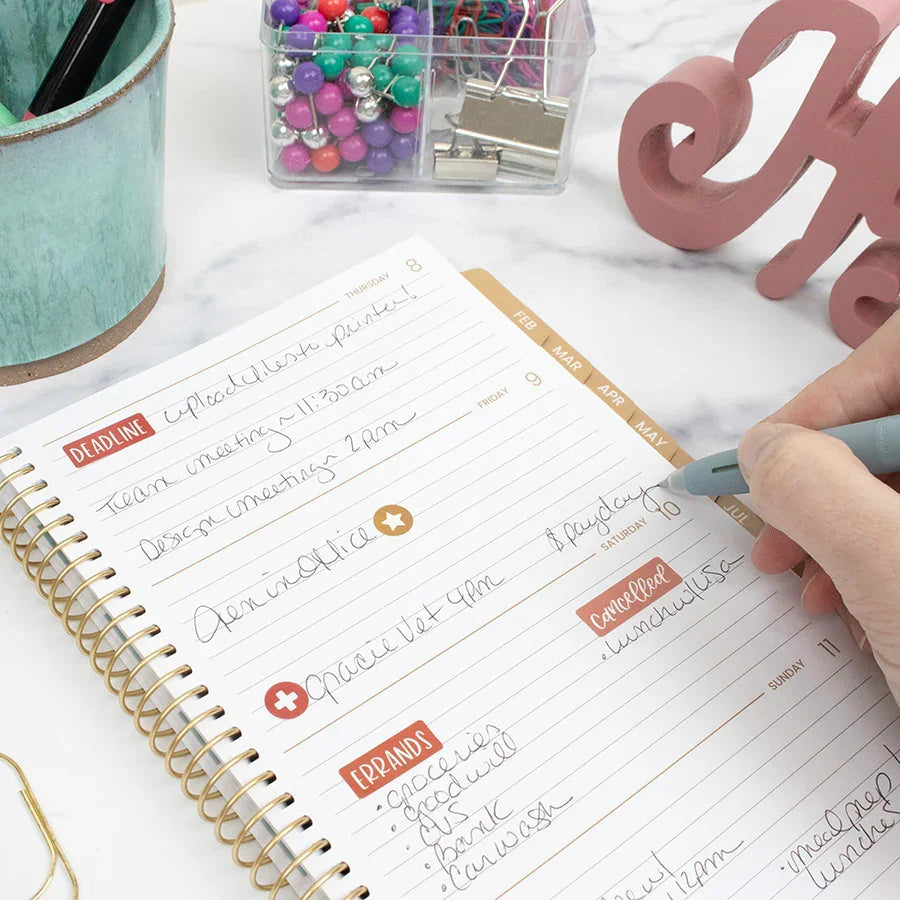 THURSDAY 8
DEADLINE upload files to printer!
Team meeting ~ 11:30am
Design meeting ~ 2pm
FRIDAY 9
Gemin Office
$ payday
Gracie Vet 4pm
SATURDAY 10
cancelled
• lunch w/ Lisa
ERRANDS
• groceries
• goodwill
• CVS
• bank
• car wash
SUNDAY 11
12pm
• meal prep
lunches
FEB
MAR
APR
MAY
JUL